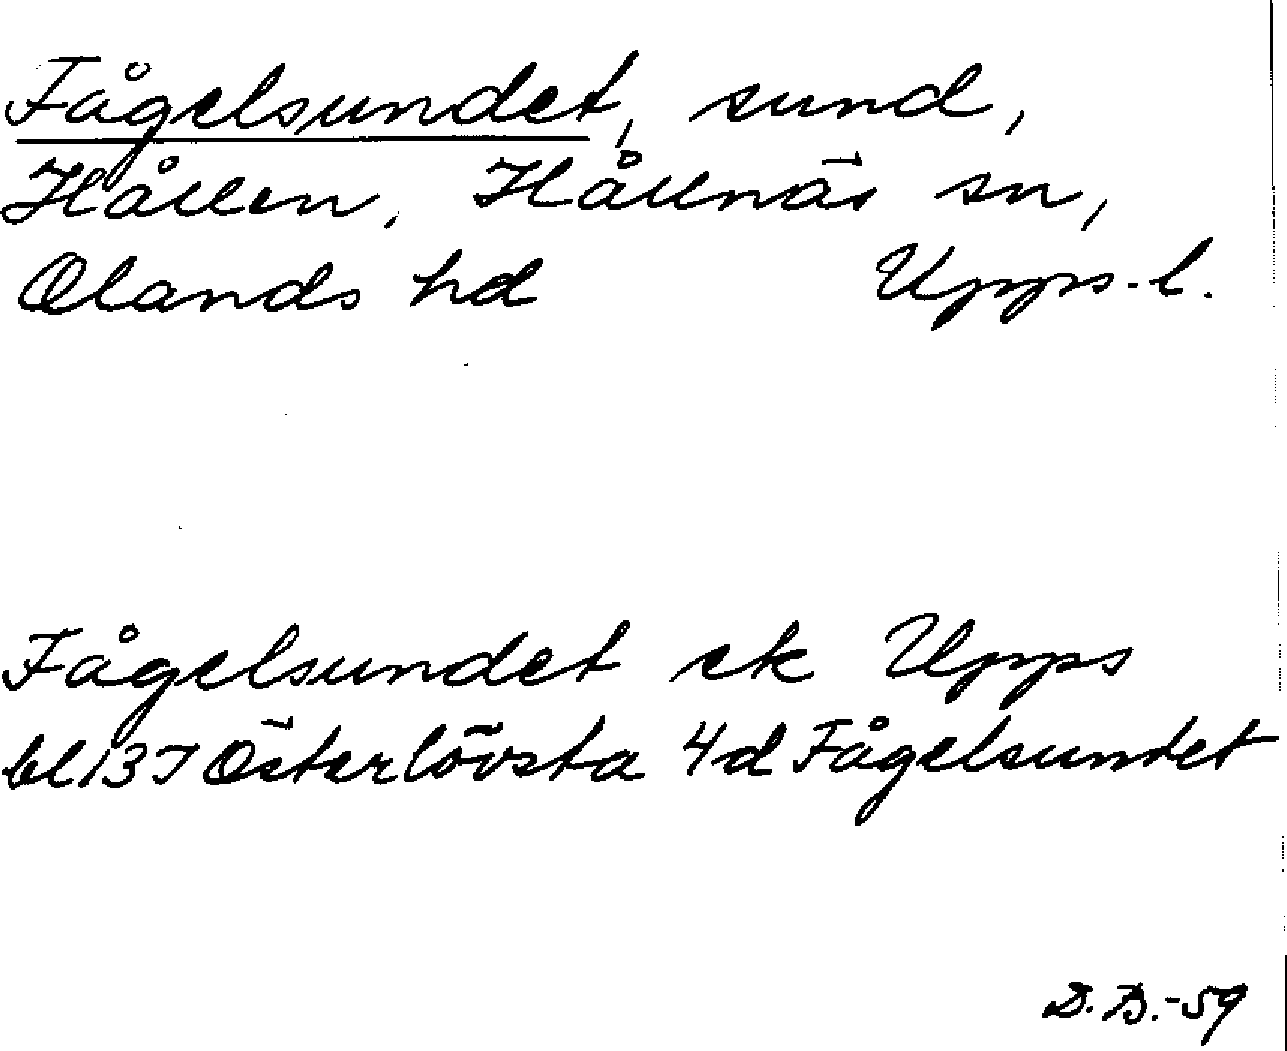 Fågelsundet, sund,
Hållen, Hållnäs sn,
Olands hd Upps. l.
Fågelsundet ek Upps
bl 13I Österlövsta 4d Fågelsundet
D.B.-59